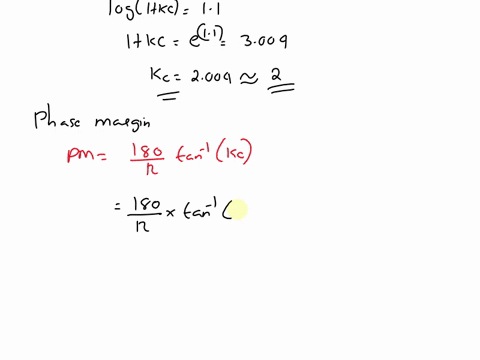 log(1+kc) = 1.1
1+kc = e^(1.1) = 3.009
Kc = 2.009 ≈ 2
Phase margin
PM = 180/π tan⁻¹(Kc)
= 180/π × tan⁻¹(